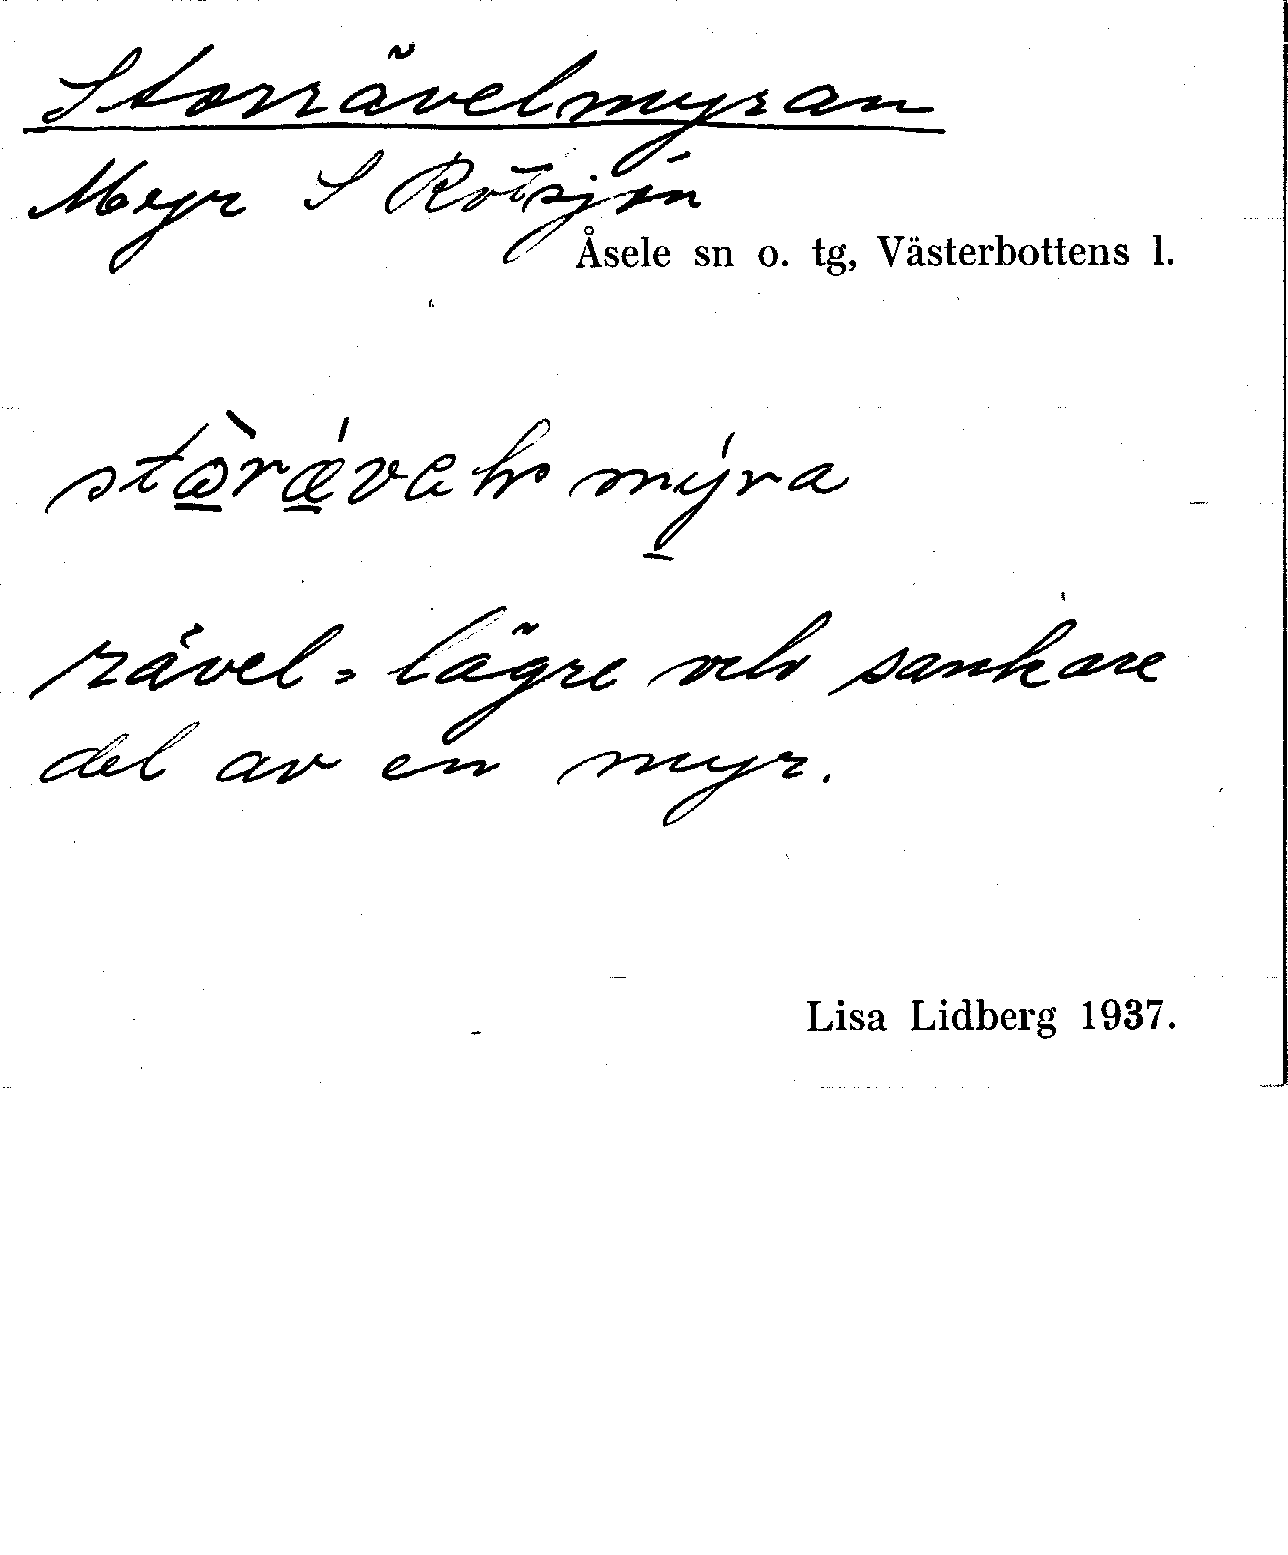 Storrävelmyran
Myr S Rotsjön
Åsele sn o. tg, Västerbottens l.
myra
rävel = lägre och sankare
del av en myr.
Lisa Lidberg 1937.